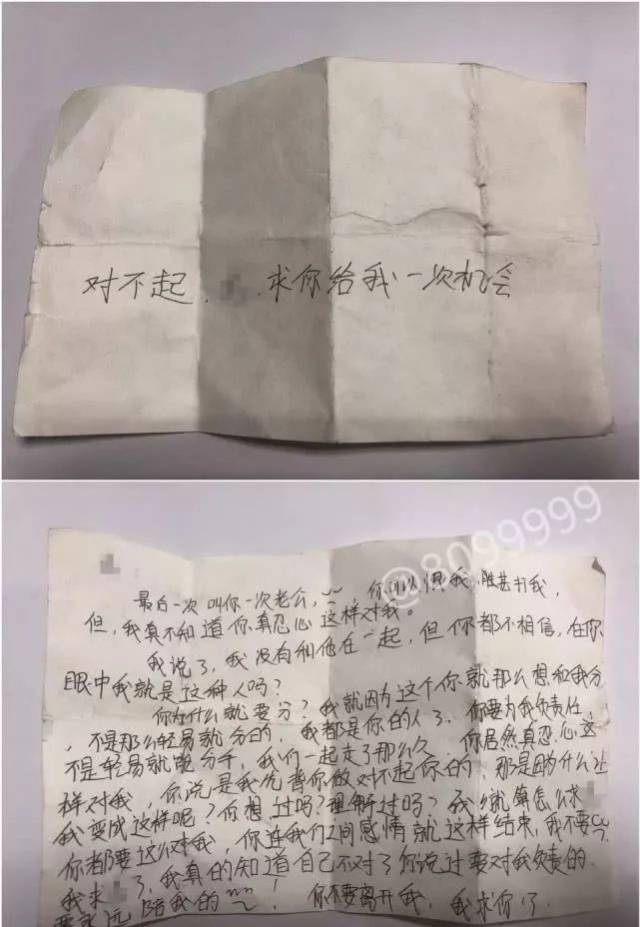 对不起 . 求你给我一次机会
@8099999
最后一次叫你一次老公, 你可以恨我, 甚打我,
但,我真不知道你真忍心这样对我。
我说了,我没有和他在一起,但你都不相信,在你
眼中我就是这种人吗?
你为什么就要分?我就因为这个你就那么想和我分
,不是那么轻易就分的,我都是你的人了.你要为我负责任,
不是轻易就能分手,我们一起走了那么久,你居然真忍心这
样对我,你说是我先背你做对不起你的,那是因为什么让
我变成这样呢?你想过吗?理解过吗?我就算怎么求
你都要这么对我,你连我们之间感情就这样结束,我不要
我求 了,我真的知道自己不对了你说过要对我负责的.
要永远陪我的 ! 你不要离开我,我求你了.